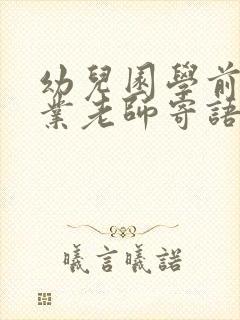 幼兒園學前
業老師寄語
曦言曦諾